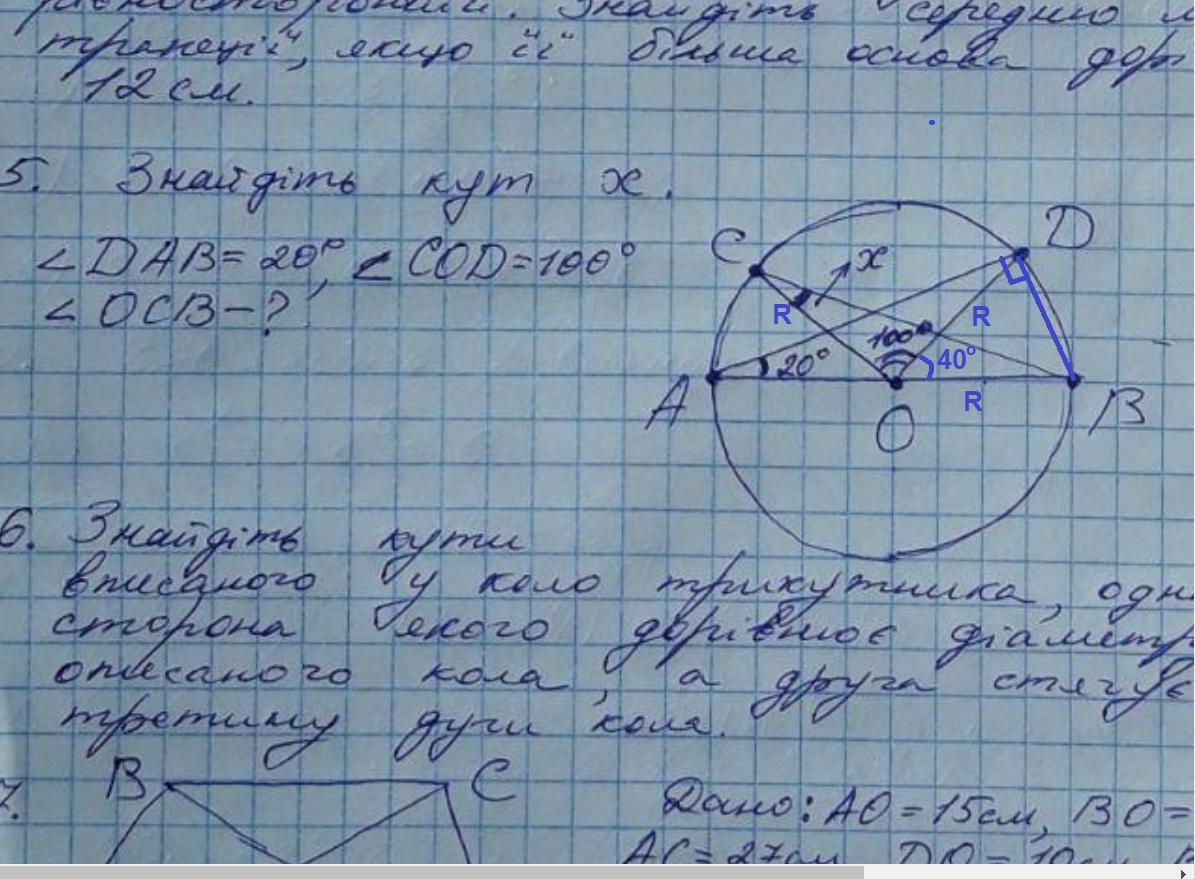 рівносторонній. Знайдіть середню
трапеції, якщо її більша основа дорі
12 см.
5. Знайдіть кут x.
∠DAB = 20°, ∠COD = 100°
∠OCB – ?
C
D
x
R
R
100°
20°
40°
R
A
B
O
6. Знайдіть кути
вписаного у коло трикутника, одн
сторона якого дорівнює діаметр
описаного кола, а друга стягує
третину дуги кола.
7.
B
C
Дано: AO = 15 см, BO =
AC = 27 см, DO = 10 см,